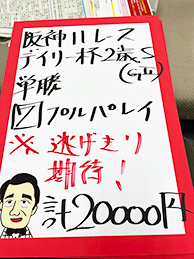 阪神11レース
デイリー杯2歳S
(GⅡ)
単勝
7 プルパレイ
※ 逃げきり
期待!
計20000円